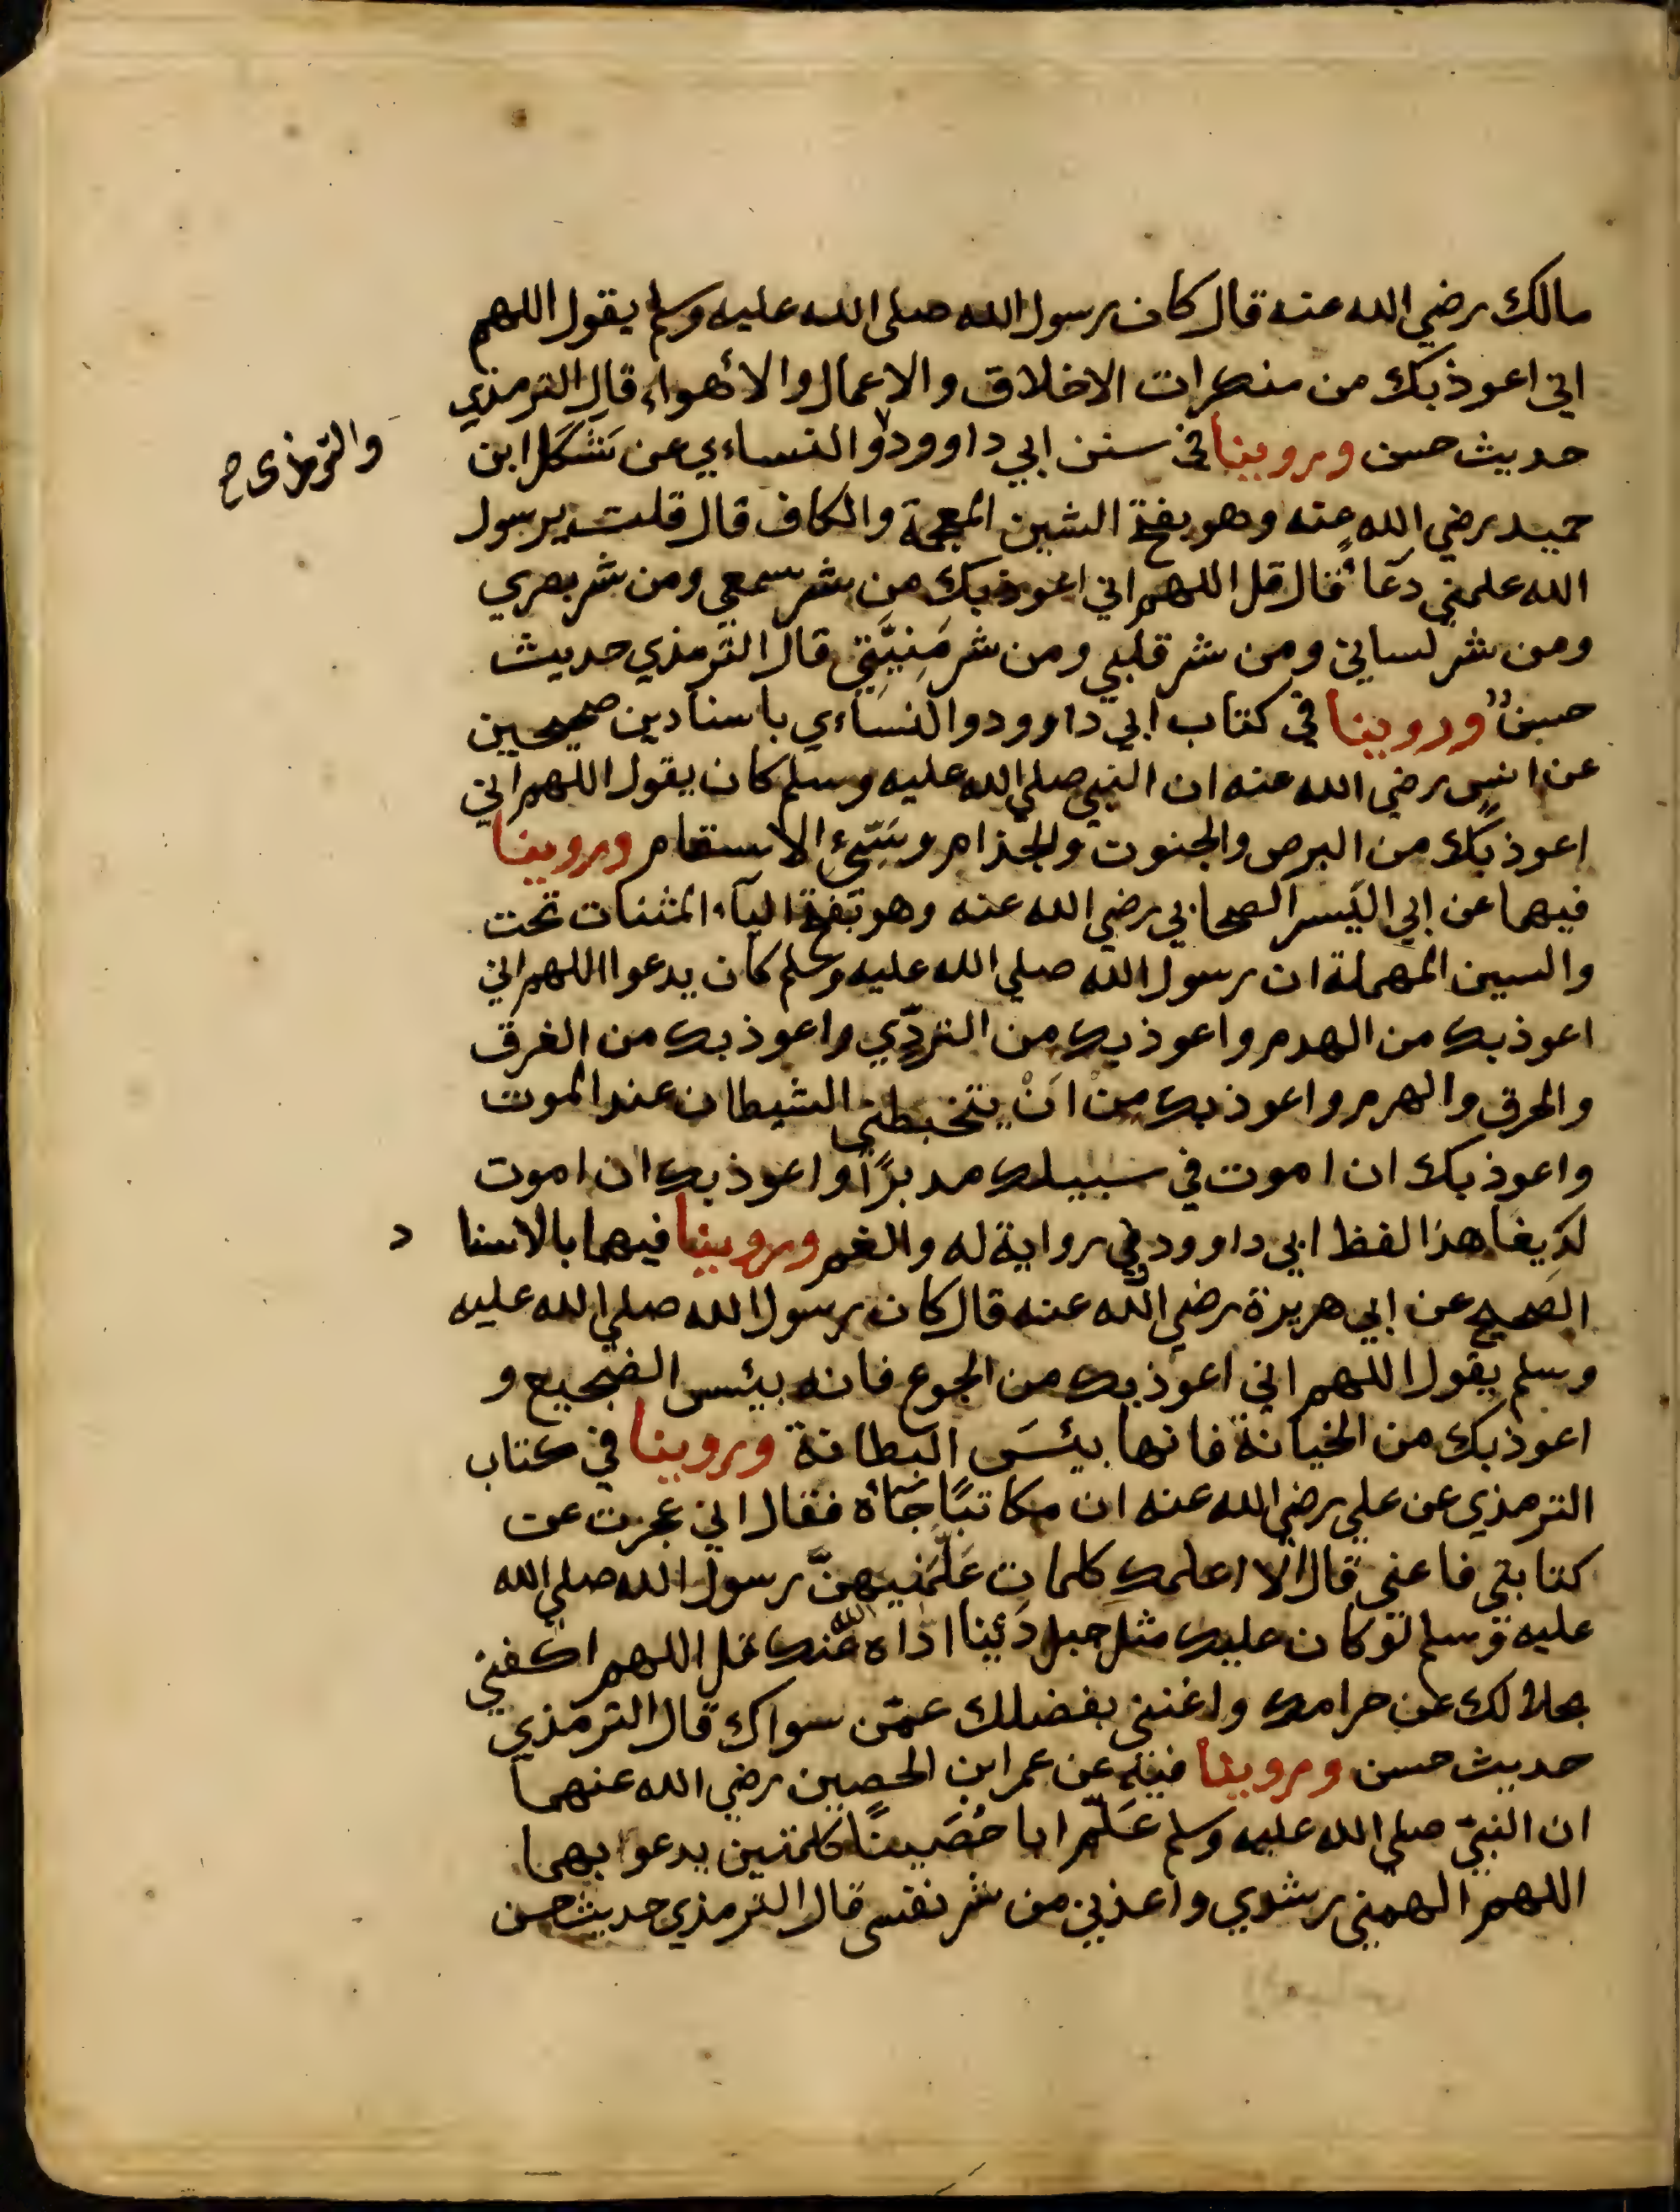 مالك رضي الله عنه قال كان رسول الله صلى الله عليه وسلم يقول اللهم
اني اعوذ بك من منكرات الاخلاق والاعمال والأهواء قال الترمذي
حديث حسن وروينا في سنن ابي داوود والنساءي عن شَكَل ابن
والترمذى صح
حميد رضي الله عنه وهو بفتح الشين المعجمة والكاف قال قلت يرسول
الله علمني دعاً قال قل اللهم اني اعوذ بك من شر سمعي ومن شر بصري
ومن شر لساني ومن شر قلبي ومن شر مَنِيَّتِي قال الترمذي حديث
حسن وروينا في كتاب ابي داوود والنساءي باسنادين صحيحين
عن انس رضي الله عنه ان النبي صلي الله عليه وسلم كان يقول اللهم اني
اعوذ بك من البرص والجنون والجذام وسَيّئِ الاسقام وروينا
فيهما عن ابي اليَسر الصحابي رضي الله عنه وهو بفتح اليآء المثنات تحت
والسين المهملة ان رسول الله صلي الله عليه وسلم كان يدعوا اللهم اني
اعوذ بك من الهدم واعوذ بك من التردّي واعوذ بك من الغرق
والحرق والهرم واعوذ بك من اَنْ يتخبطني الشيطان عند الموت
واعوذ بك ان اموت في سبيلك مدبرًا واعوذ بك ان اموت
لَدِيغا هذا لفظ ابي داوود وفي رواية له والغم وروينا فيهما بالاسنا د
الصحيح عن ابي هريرة رضي الله عنه قال كان رسول الله صلي الله عليه
وسلم يقول اللهم اني اعوذ بك من الجوع فانه بيئس الضجيع و
اعوذ بك من الخيانة فانها بيئسَ البطانة وروينا في كتاب
الترمذي عن علي رضي الله عنه ان مكاتبًا جَاه فقال اني عجزت عن
كتابتي فاعني قال الا اعلمك كلمات عَلّمَنيهنّ رسول الله صلي الله
عليه وسلم لو كان عليك مثل جبل دَيْنا اداه الله عنك قل اللهم اكفني
بحلالك عن حرامك واغنني بفضلك عمّن سواك قال الترمذي
حديث حسن وروينا فيه عن عمران الحصين رضي الله عنهما
ان النبيّ صلي الله عليه وسلم عَلّم ابا حُصَينًا كلمتين يدعوا بهما
اللهم الهمني رشدي واعذني من شر نفسي قال الترمذي حديث حسن